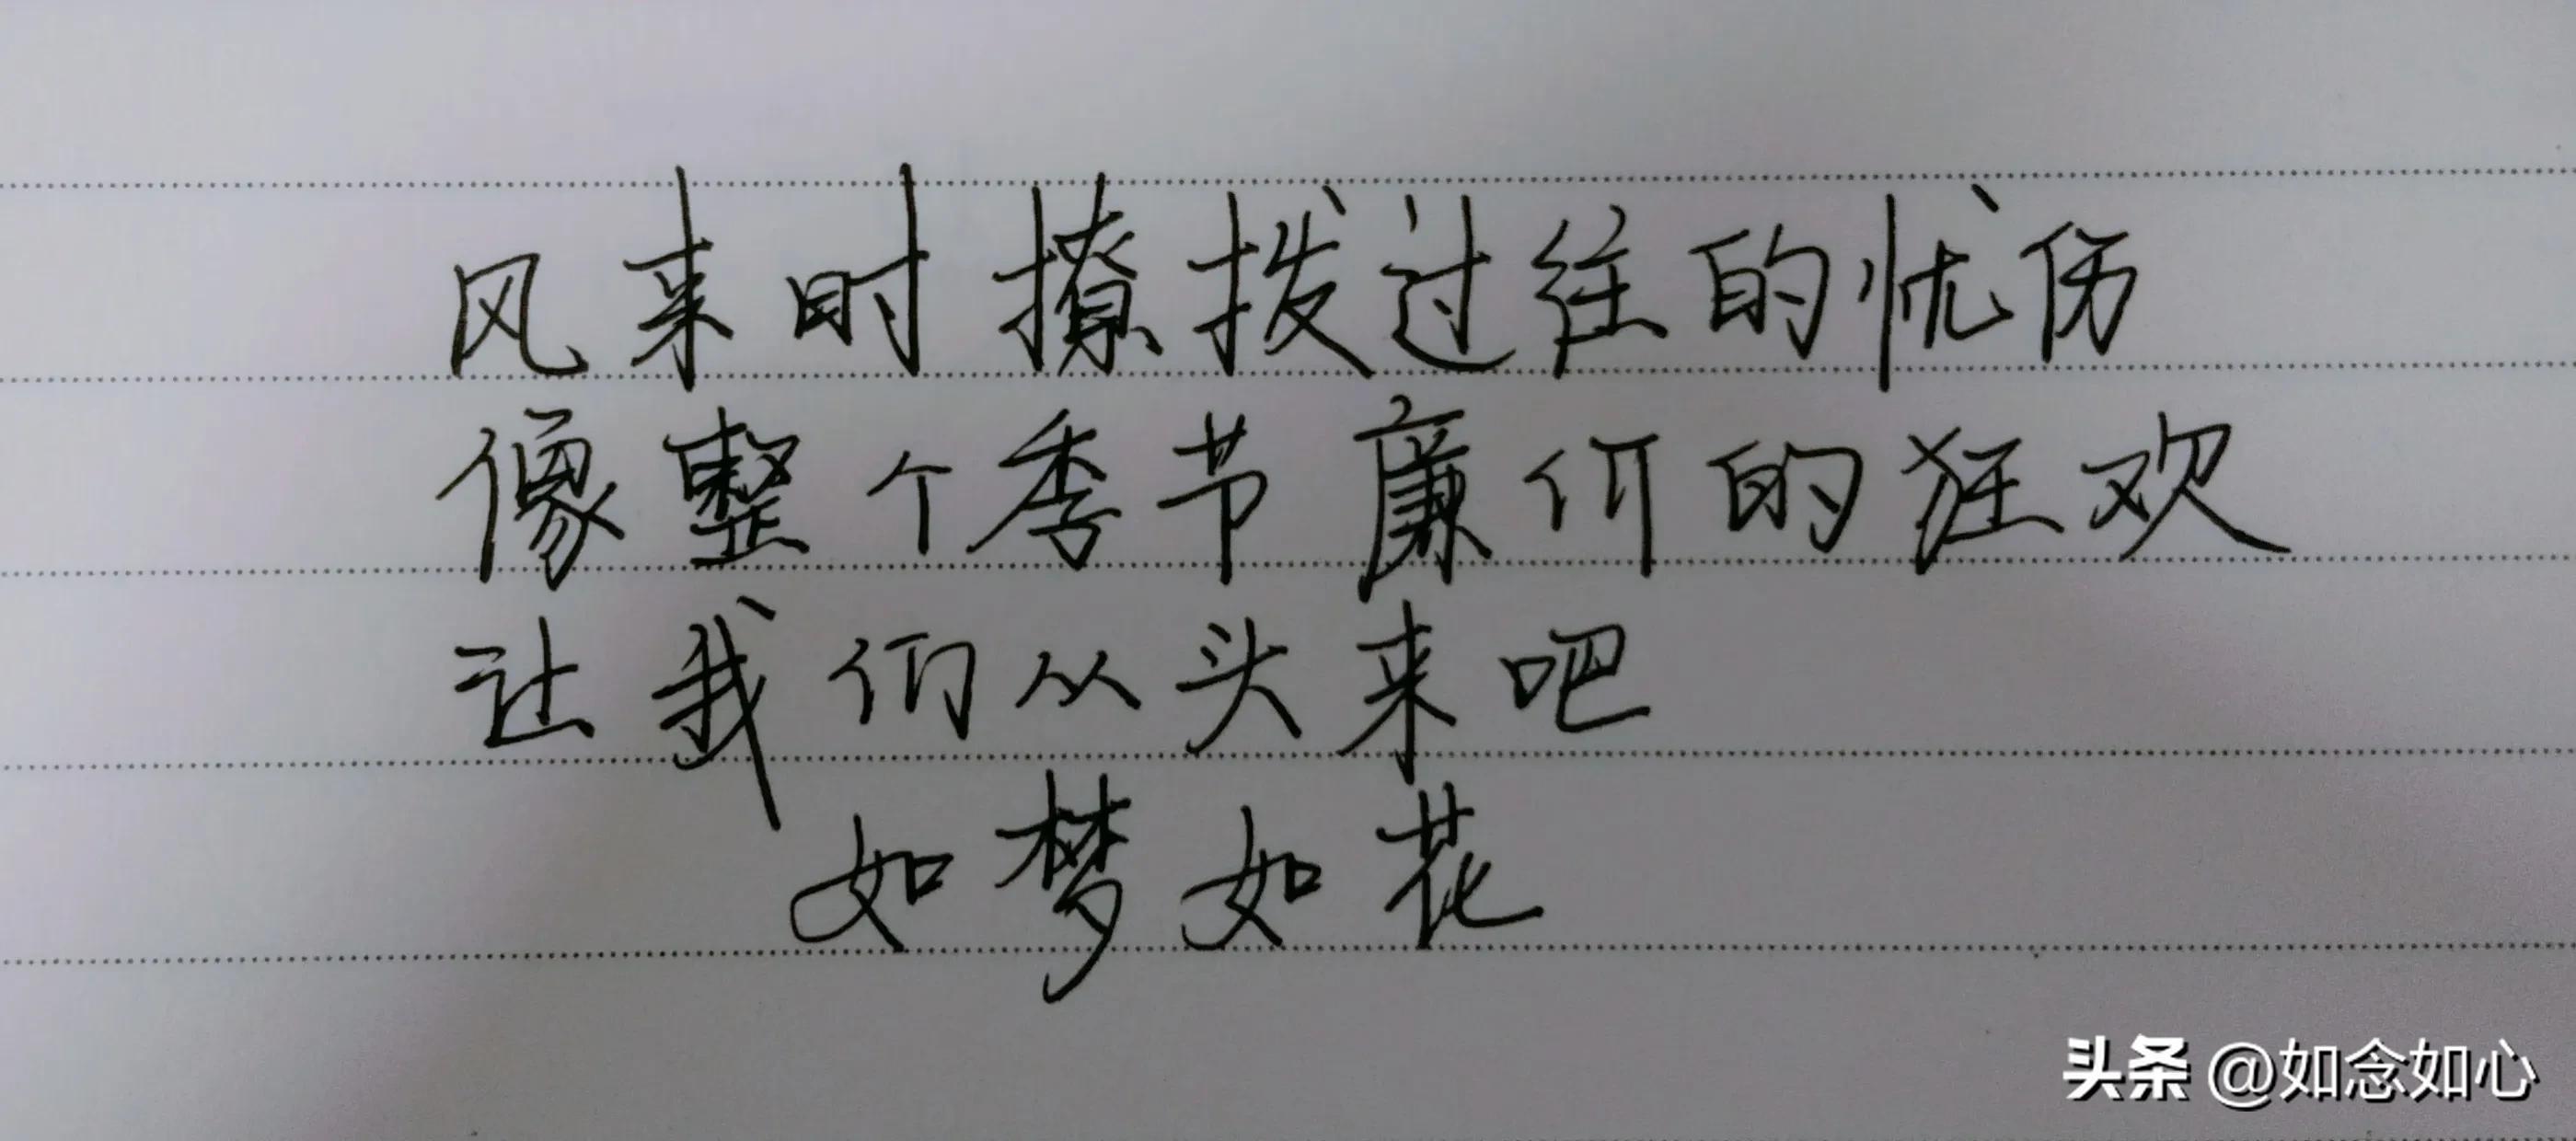 风来时撩拨过往的忧伤
像整个季节廉价的狂欢
让我们从头来吧
如梦如花
头条 @如念如心